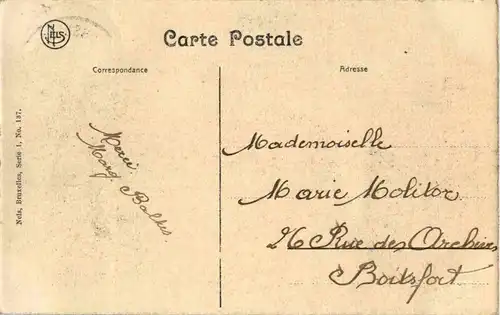 NELS
Carte Postale
Correspondance
Adresse
Merci.
Marg. Balkes.
Mademoiselle
Marie Molitor
26 Rue des Archives
Boitsfort
Nels, Bruxelles, Serie 1, No. 187.